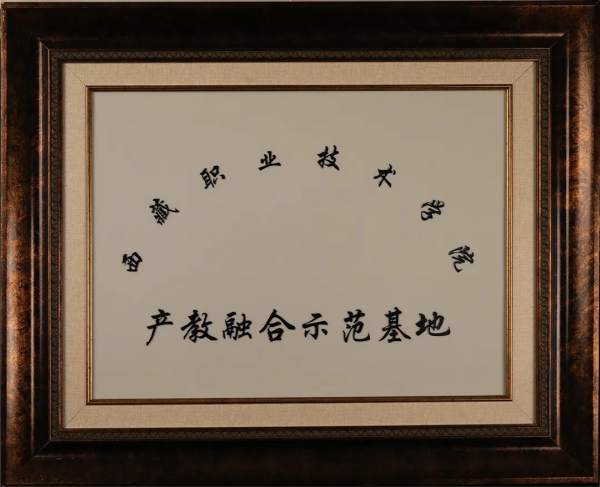 西藏职业技术学院
产教融合示范基地